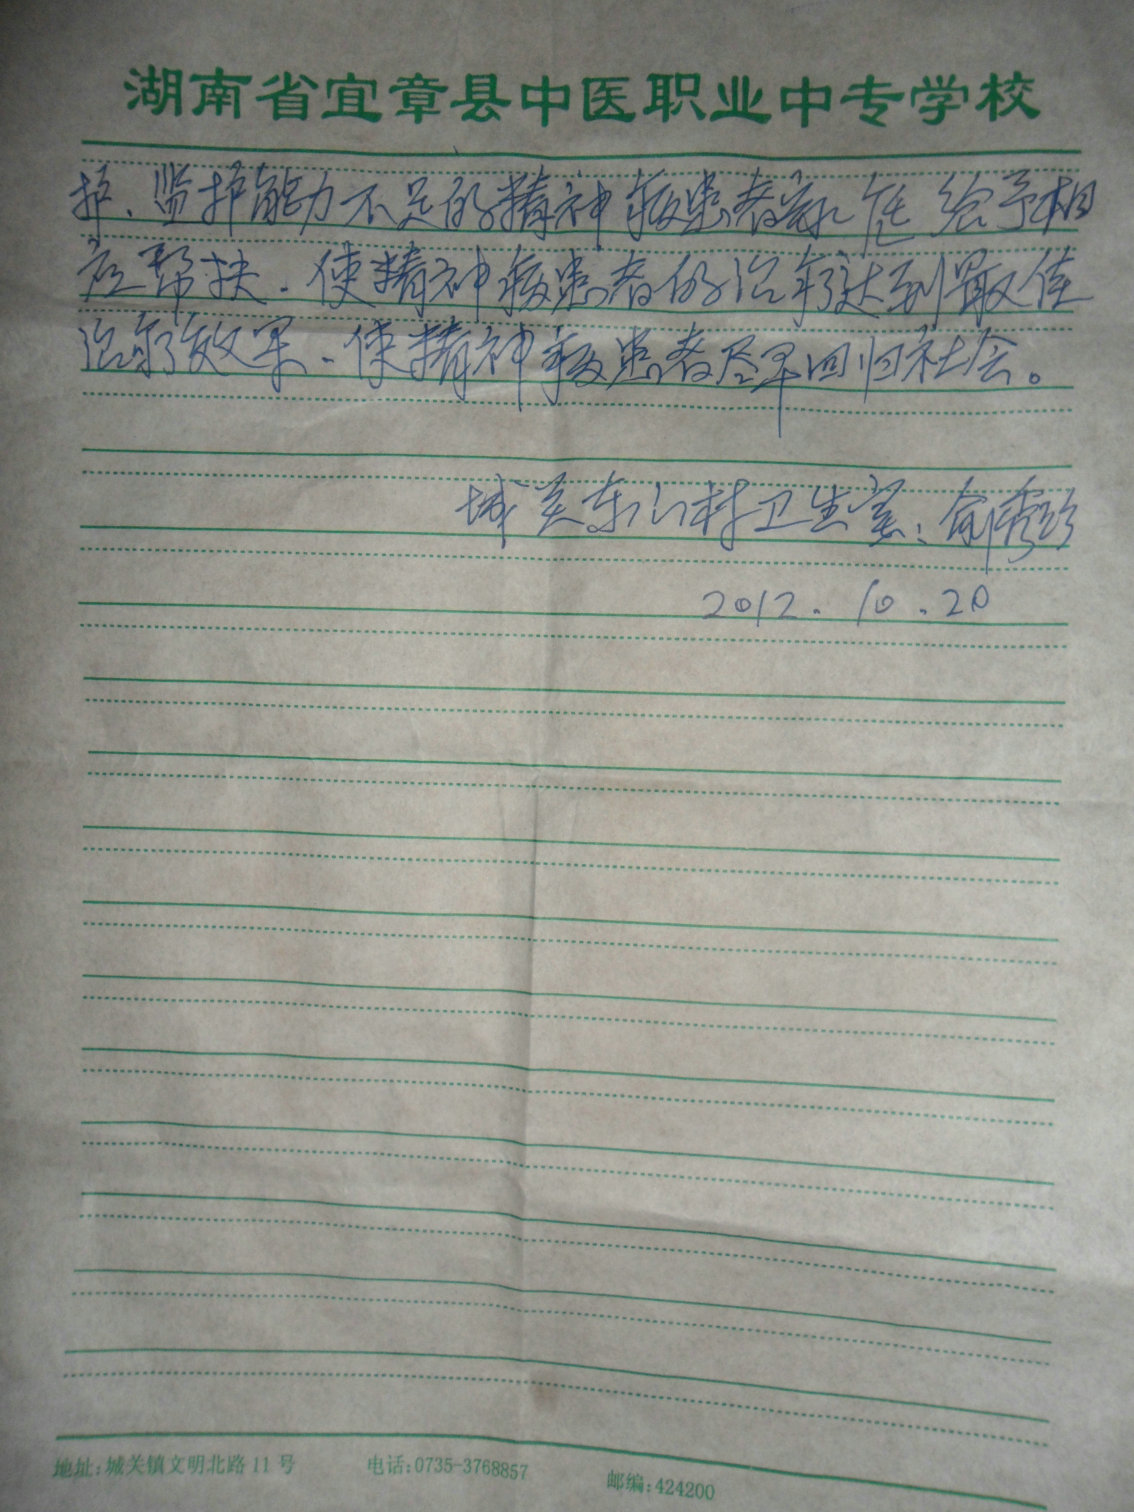 湖南省宜章县中医职业中专学校
护、监护能力不足的精神病患者家庭给予相
应帮扶.使精神病患者的治疗达到最佳
治疗效果.使精神病患者尽早回归社会。
城关东山村卫生室:俞秀珍
2012.10.20
地址:城关镇文明北路11号 电话:0735-3768857 邮编:424200